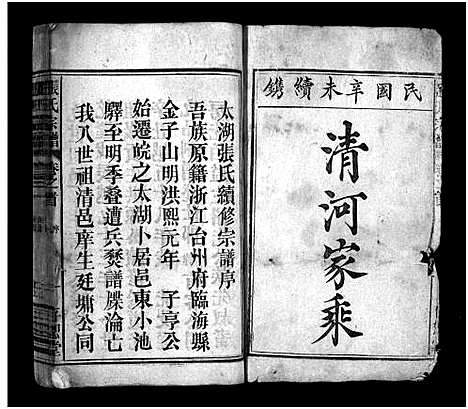 民國辛未續鐫
清河家乘
太湖張氏續修宗譜序
吾族原籍浙江台州府臨海縣
金子山明洪熙元年 子亨公
始遷皖之太湖卜居邑東小池
驛至明季疊遭兵燹譜牒淪亡
我八世祖清邑庠生廷墉公同
張氏宗譜